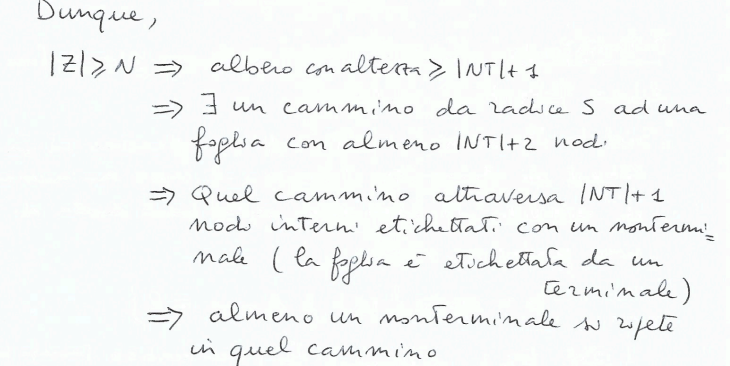 Dunque,
|Z| ≥ N ⇒ albero con altezza ≥ |NT|+1
⇒ ∃ un cammino da radice S ad una
foglia con almeno |NT|+2 nodi
⇒ Quel cammino attraversa |NT|+1
nodi interni etichettati con un nontermi=
nale (la foglia è etichettata da un
terminale)
⇒ almeno un nonterminale si ripete
in quel cammino